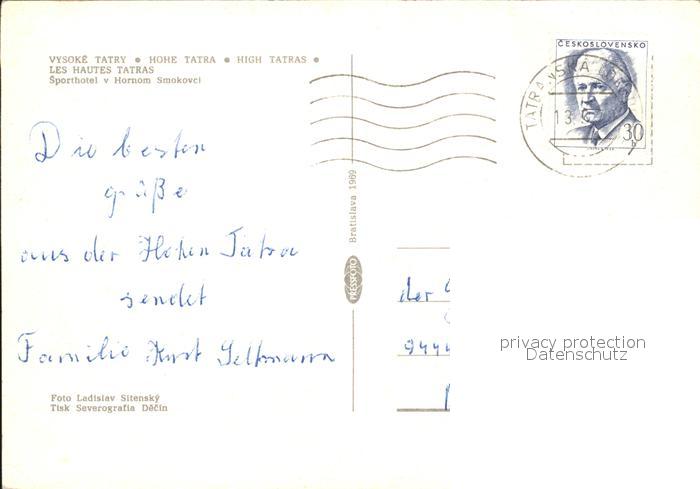 VYSOKÉ TATRY ● HOHE TATRA ● HIGH TATRAS ●
LES HAUTES TATRAS
Športhotel v Hornom Smokovci
ČESKOSLOVENSKO
30
h
TATRANSKÁ
13.
Die besten
grüße
aus der Hohen Tatra
sendet
Familie Kurt Seltmann
Bratislava 1969
PRESSFOTO
der
privacy protection
Datenschutz
Foto Ladislav Sitenský
Tisk Severografia Děčín